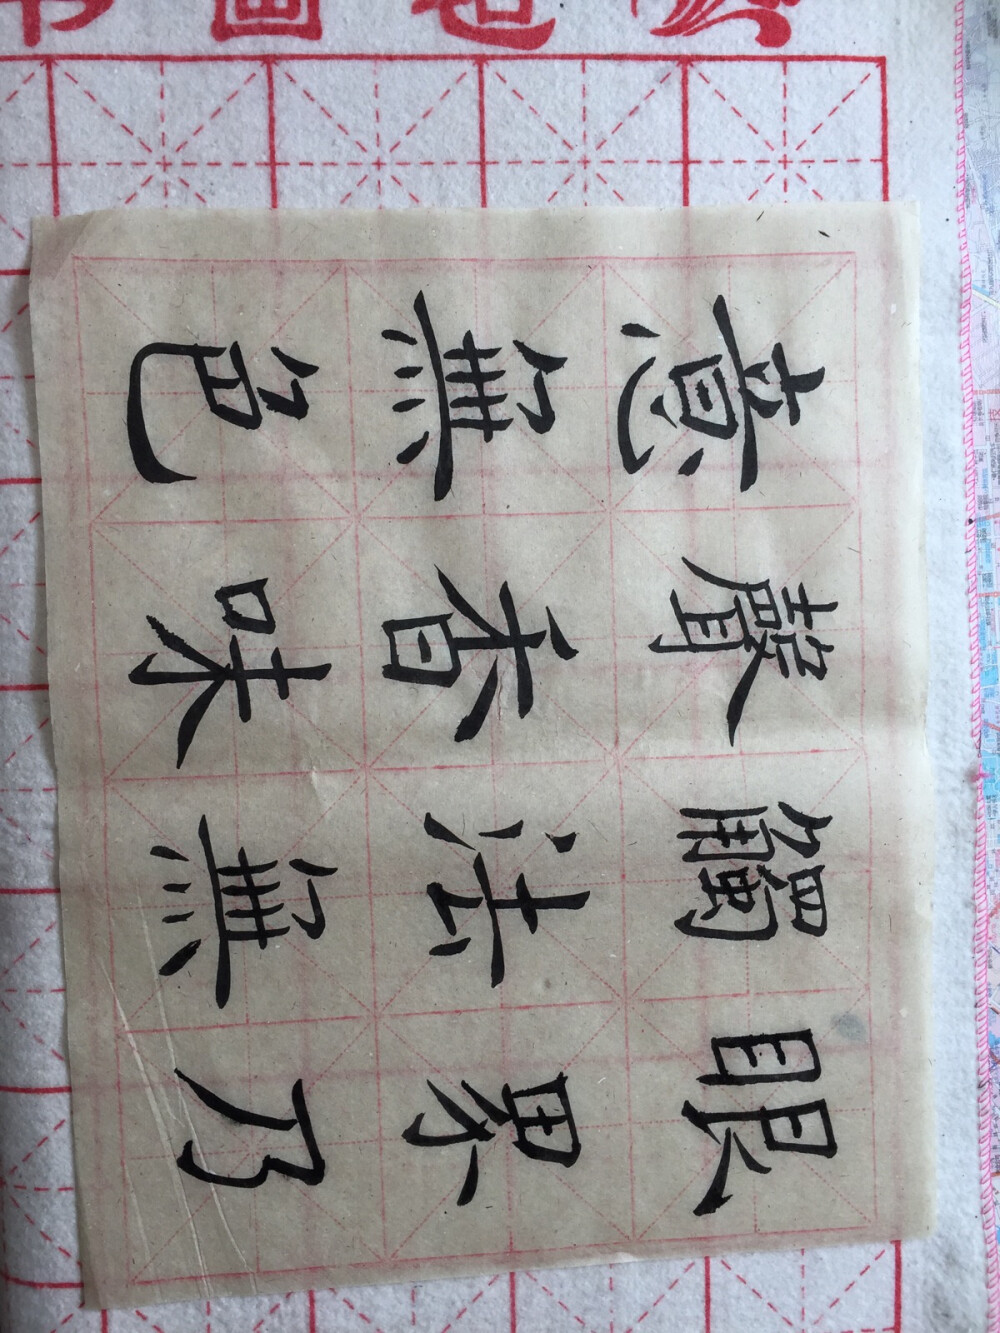 意無色
聲香味
觸法無
眼界乃